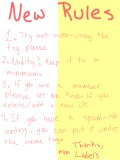 New Rules
1. Try not over-using the
tag, please
2. Nudity? keep it to a
minimum.
3. If you're a member
please, let me know if you
delete/add a new OC
4. If you have a spam-ish
entry, you can put it under
the meme tag.
Thanks,